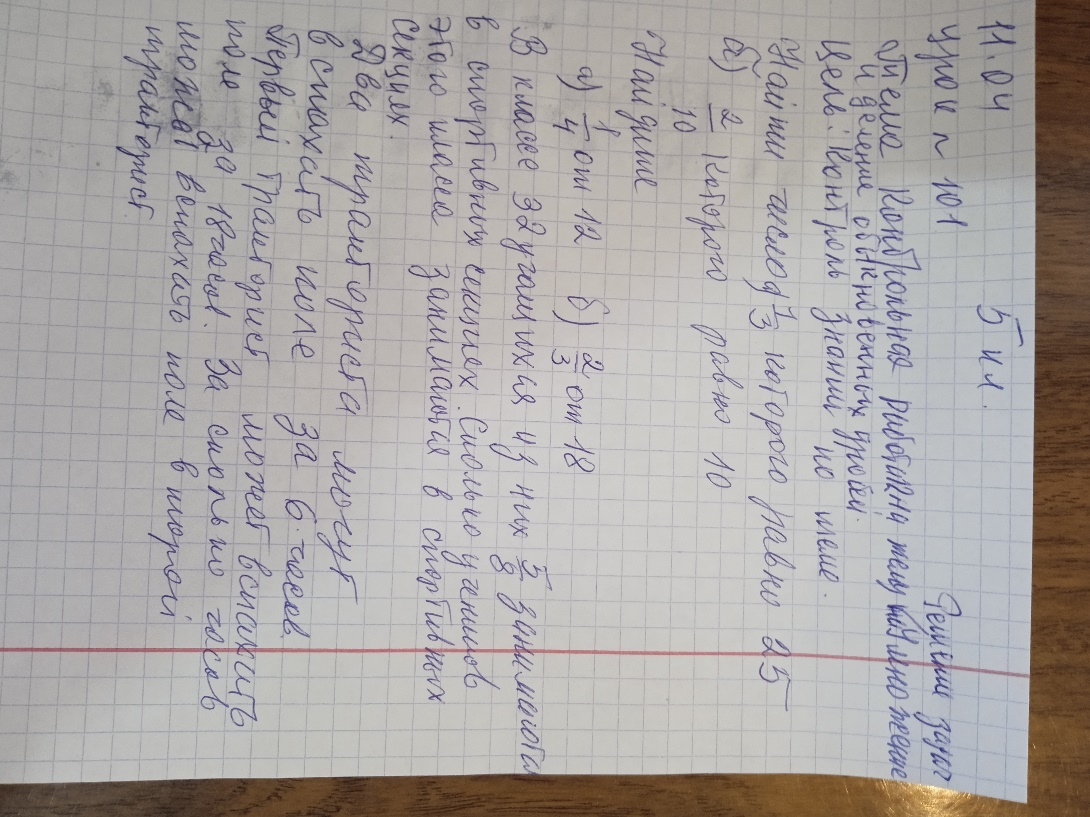 11.04 5 кл.
урок n 101 Решение задач
Тема Контрольная работа на тему Умножение
и деление обыкновенных дробей.
Цель: Контроль знаний по теме.
Найти число а) 1/3 которого равно 25
б) 2/10 которого равно 10
Найдите
а) 1/4 от 12 б) 2/3 от 18
В классе 32 учащихся из них 5/8 занимаются
в спортивных секциях. Сколько учеников
этого класса занимаются в спортивных
секциях.
Два тракториста могут
вспахать поле за 6 часов.
Первый тракторист может вспахать
поле за 18 часов. За сколько часов
может вспахать поле второй
тракторист